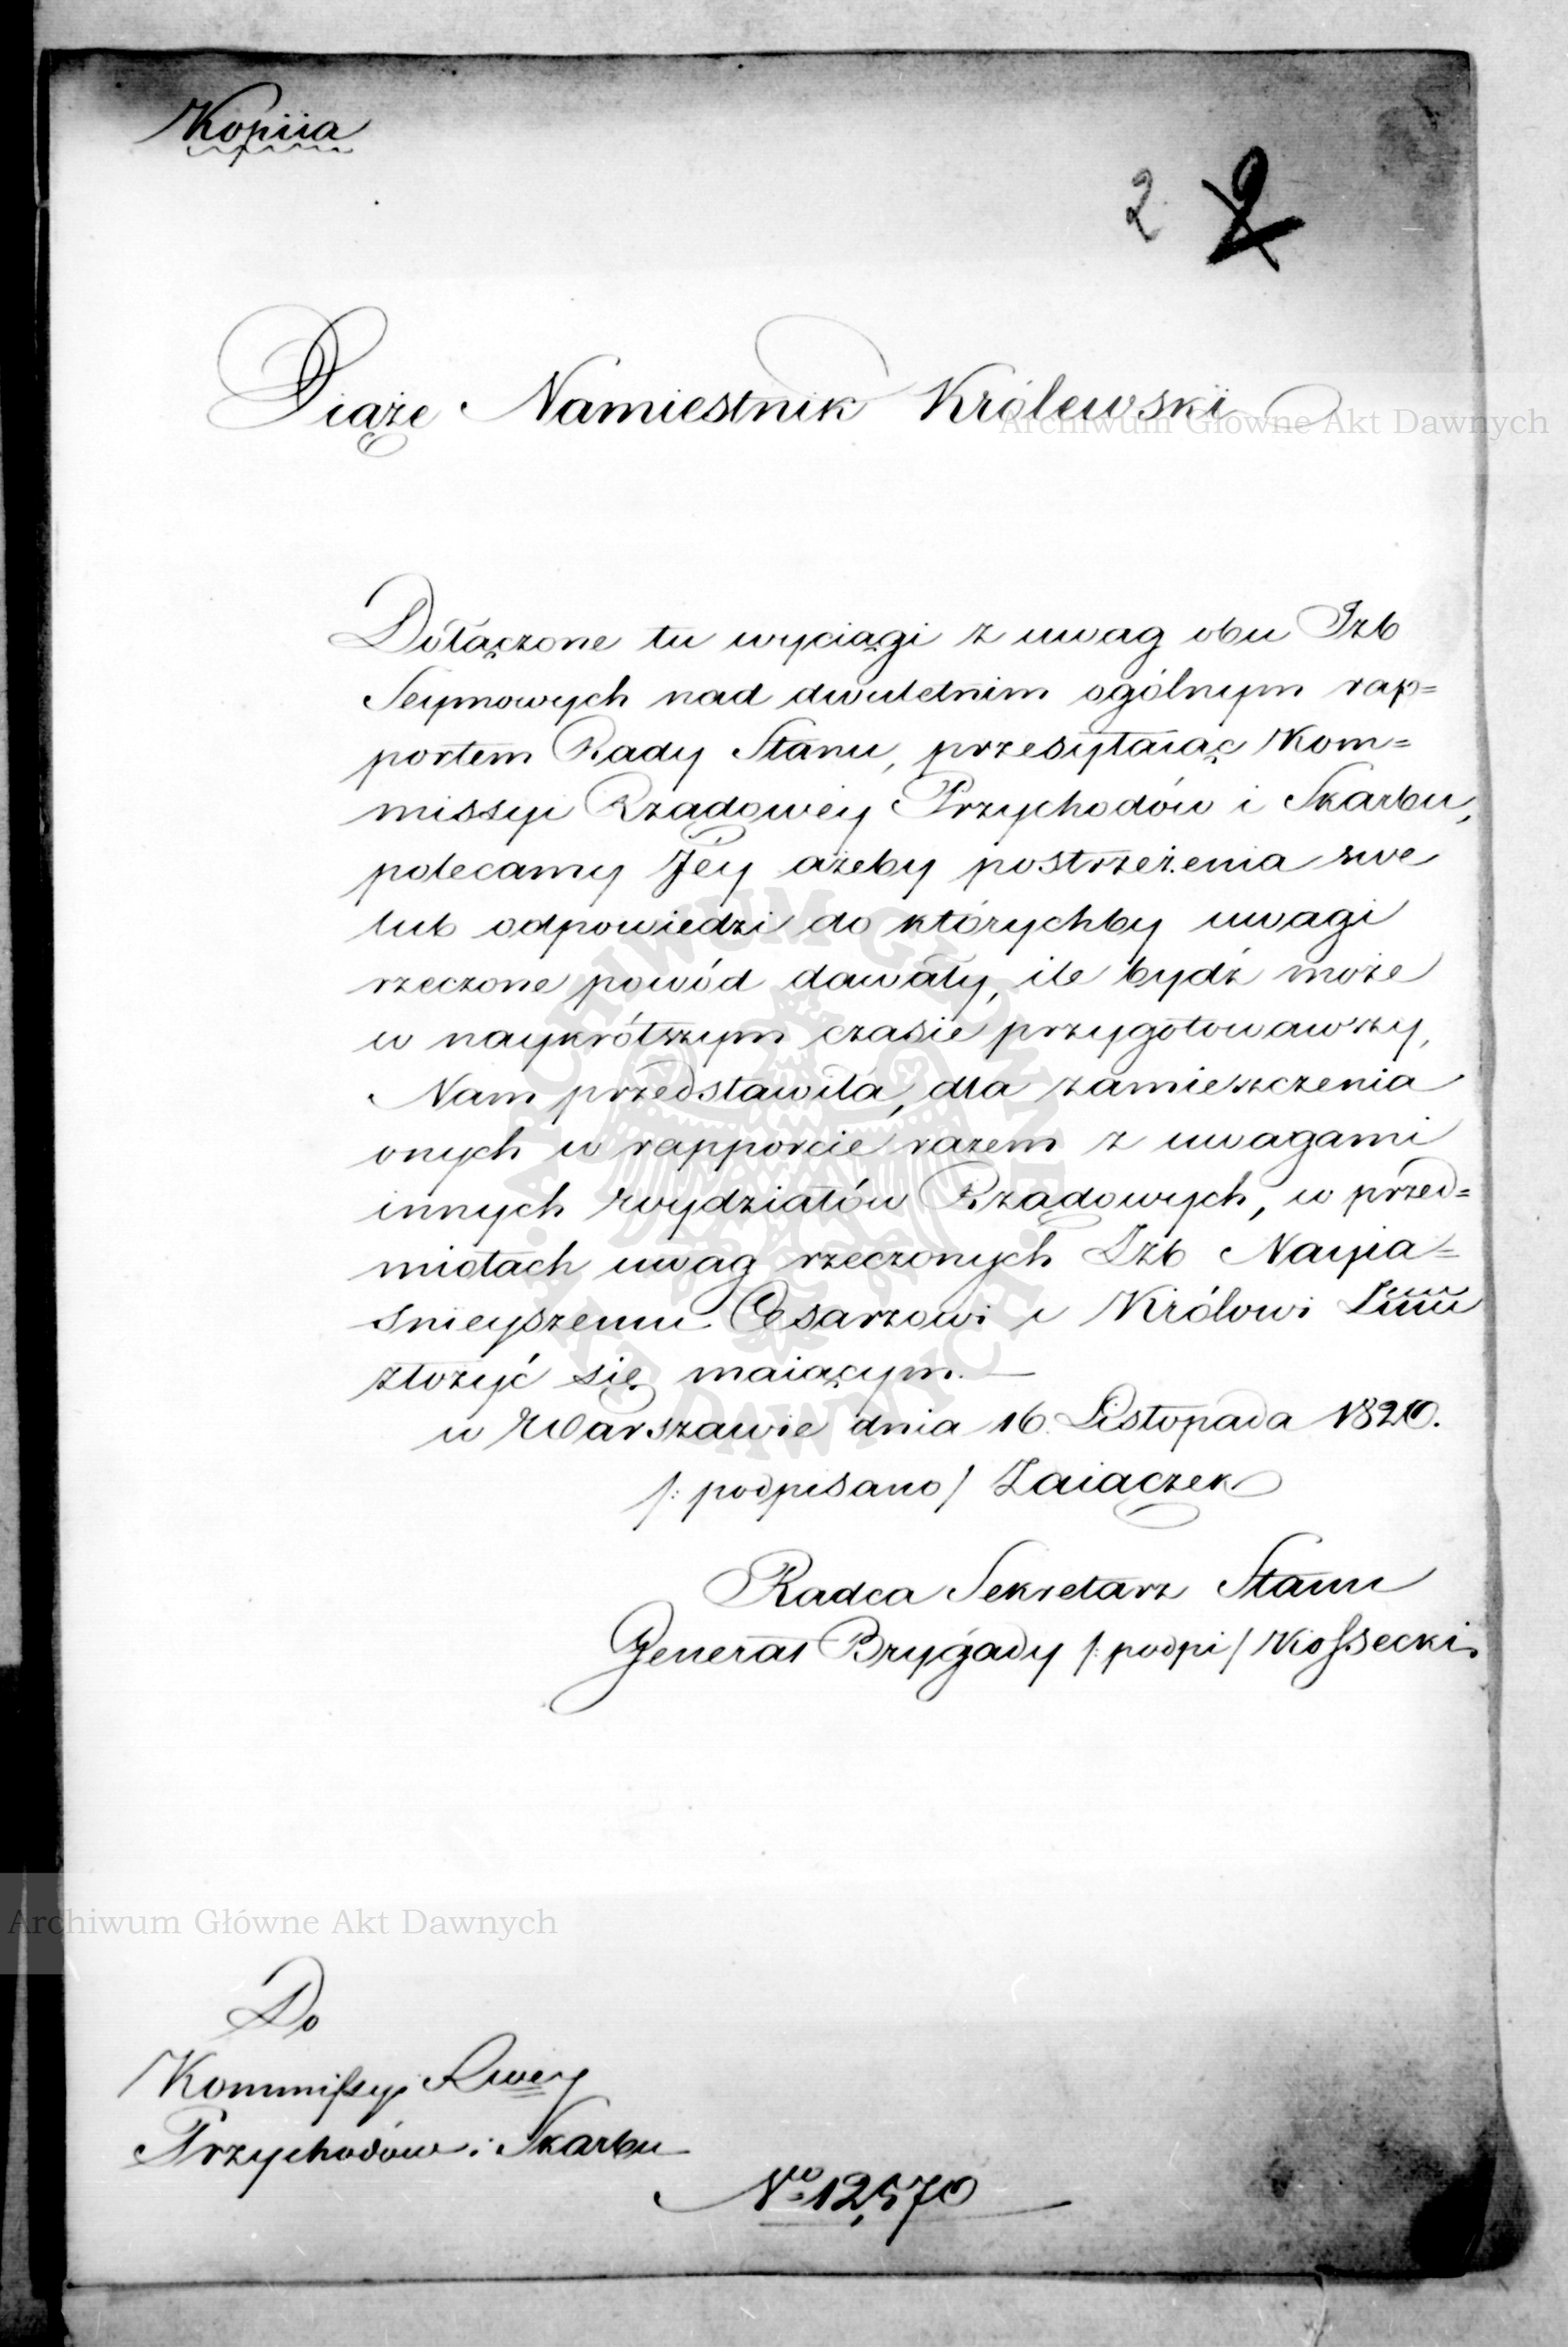 Kopiia
2. 2
Xiąże Namiestnik Królewski
Dołączone tu wyciągi z uwag obu Izb
Seymowych nad dwuletnim ogólnym rap=
portem Rady Stanu, przesyłaiąc Kom=
missyi Rządowey Przychodów i Skarbu,
polecamy Jey ażeby postrzeżenia swe
lub odpowiedzi do którychby uwagi
rzeczone powód dawały, ile bydź może
w naykrótszym czasie przygotowawszy,
Nam przedstawiła, dla zamieszczenia
onych w rapporcie razem z uwagami
innych wydziałów Rządowych, w przed=
miotach uwag rzeczonych Izb Nayia=
śnieyszemu Cesarzowi i Królowi
złożyć się maiącym.—
w Warszawie dnia 16. Listopada 1820.
/: podpisano/ Zaiączek
Radca Sekretarz Stanu
Generał Brygady /: podpi/ Kossecki.
Do
Kommissyi Rwey
Przychodów i Skarbu
No 12,570
Archiwum Główne Akt Dawnych
Archiwum Główne Akt Dawnych
ARCHIWUM GŁÓWNE AKT DAWNYCH